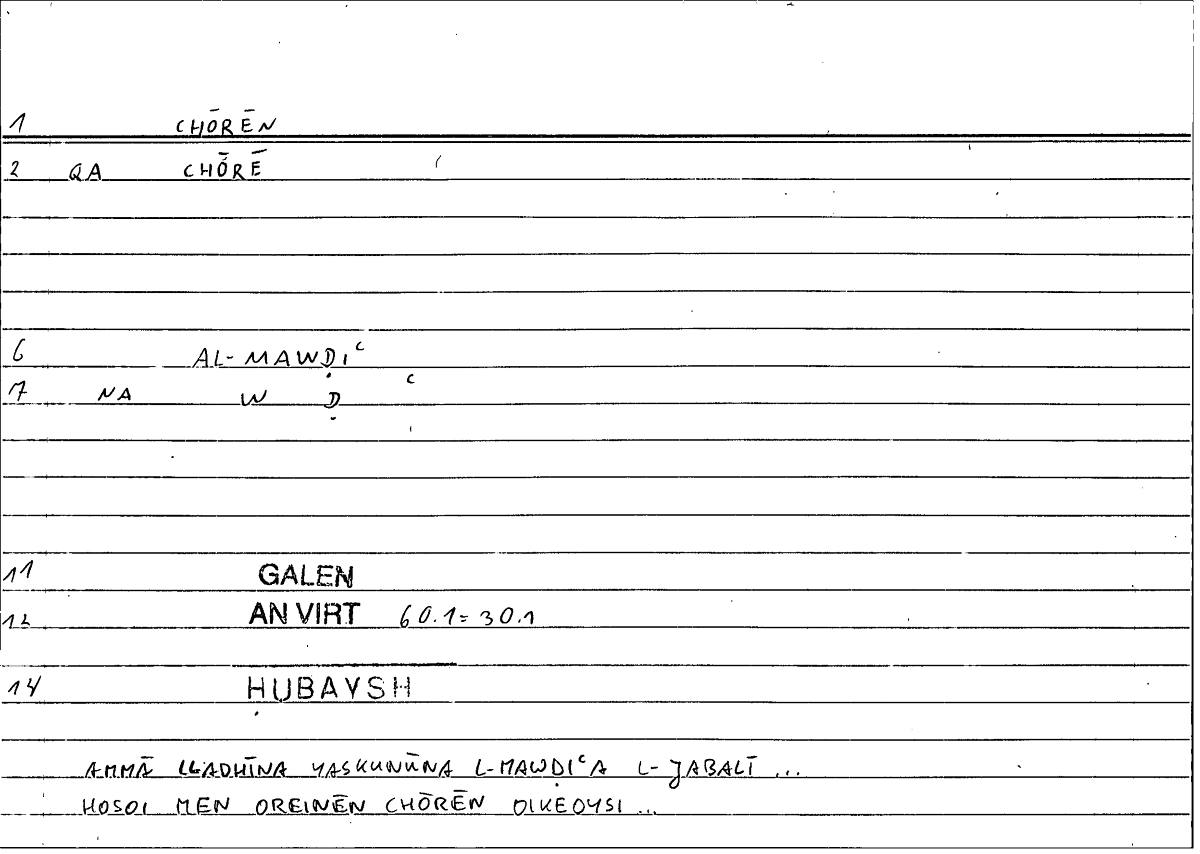 1 CHŌRĒN
2 QA CHŌRĒ
6 AL-MAWḌIᶜ
7 NA W Ḍ ᶜ
11 GALEN
12 AN VIRT 60.1=30.1
14 ḤUBAYSH
AMMĀ LLADHĪNA YASKUNŪNA L-MAWḌIᶜA L-JABALĪ ...
HOSOI MEN OREINĒN CHŌRĒN OIKEOYSI ...